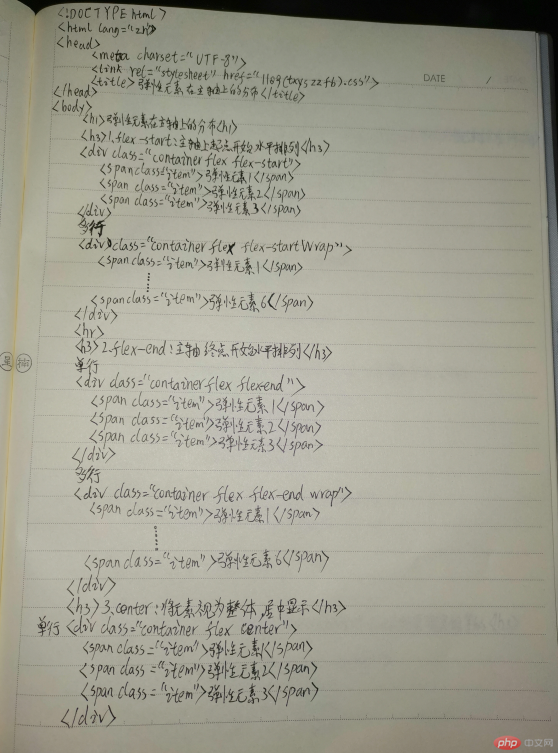 <!DOCTYPE html>
<html lang="zh">
<head>
<meta charset="UTF-8">
<link rel="stylesheet" href="1109(txyszzfb).css">
DATE /
<title>弹性元素在主轴上的分布</title>
</head>
<body>
<h1>弹性元素在主轴上的分布<h1>
<h3>1.flex-start:主轴上起点开始水平排列</h3>
<div class="container flex flex-start">
<span class="item">弹性元素1</span>
<span class="item">弹性元素2</span>
<span class="item">弹性元素3</span>
</div>
多行
<div class="container flex flex-start wrap">
<span class="item">弹性元素1</span>
<span class="item">弹性元素6</span>
</div>
<hr>
<h3>2.flex-end:主轴终点开始水平排列</h3>
单行
<div class="container flex flex-end">
<span class="item">弹性元素1</span>
<span class="item">弹性元素2</span>
<span class="item">弹性元素3</span>
</div>
多行
<div class="container flex flex-end wrap">
<span class="item">弹性元素1</span>
<span class="item">弹性元素6</span>
</div>
<h3>3.center:将元素视为整体,居中显示</h3>
单行 <div class="container flex center">
<span class="item">弹性元素1</span>
<span class="item">弹性元素2</span>
<span class="item">弹性元素3</span>
</div>
php 中文网